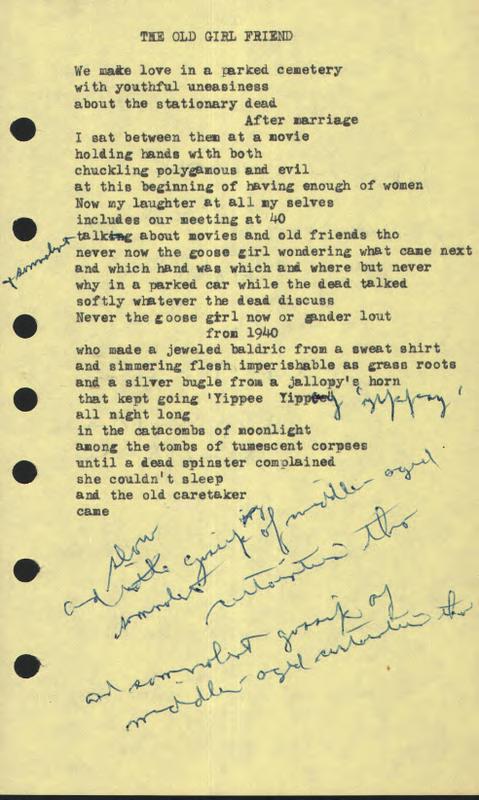 THE OLD GIRL FRIEND
We make love in a parked cemetery
with youthful uneasiness
about the stationary dead
After marriage
I sat between them at a movie
holding hands with both
chuckling polygamous and evil
at this beginning of having enough of women
Now my laughter at all my selves
includes our meeting at 40
talking about movies and old friends tho
never now the goose girl wondering what came next
+ somnolent
and which hand was which and where but never
why in a parked car while the dead talked
softly whatever the dead discuss
Never the goose girl now or gander lout
from 1940
who made a jeweled baldric from a sweat shirt
and simmering flesh imperishable as grass roots
and a silver bugle from a jallopy's horn
that kept going 'Yippee Yippey 'yippey'
all night long
in the catacombs of moonlight
among the tombs of tumescent corpses
until a dead spinster complained
she couldn't sleep
and the old caretaker
came
slow
and the gossip of middle aged
somnolent
certainties tho
and somnolent gossip of
middle-aged certainties tho